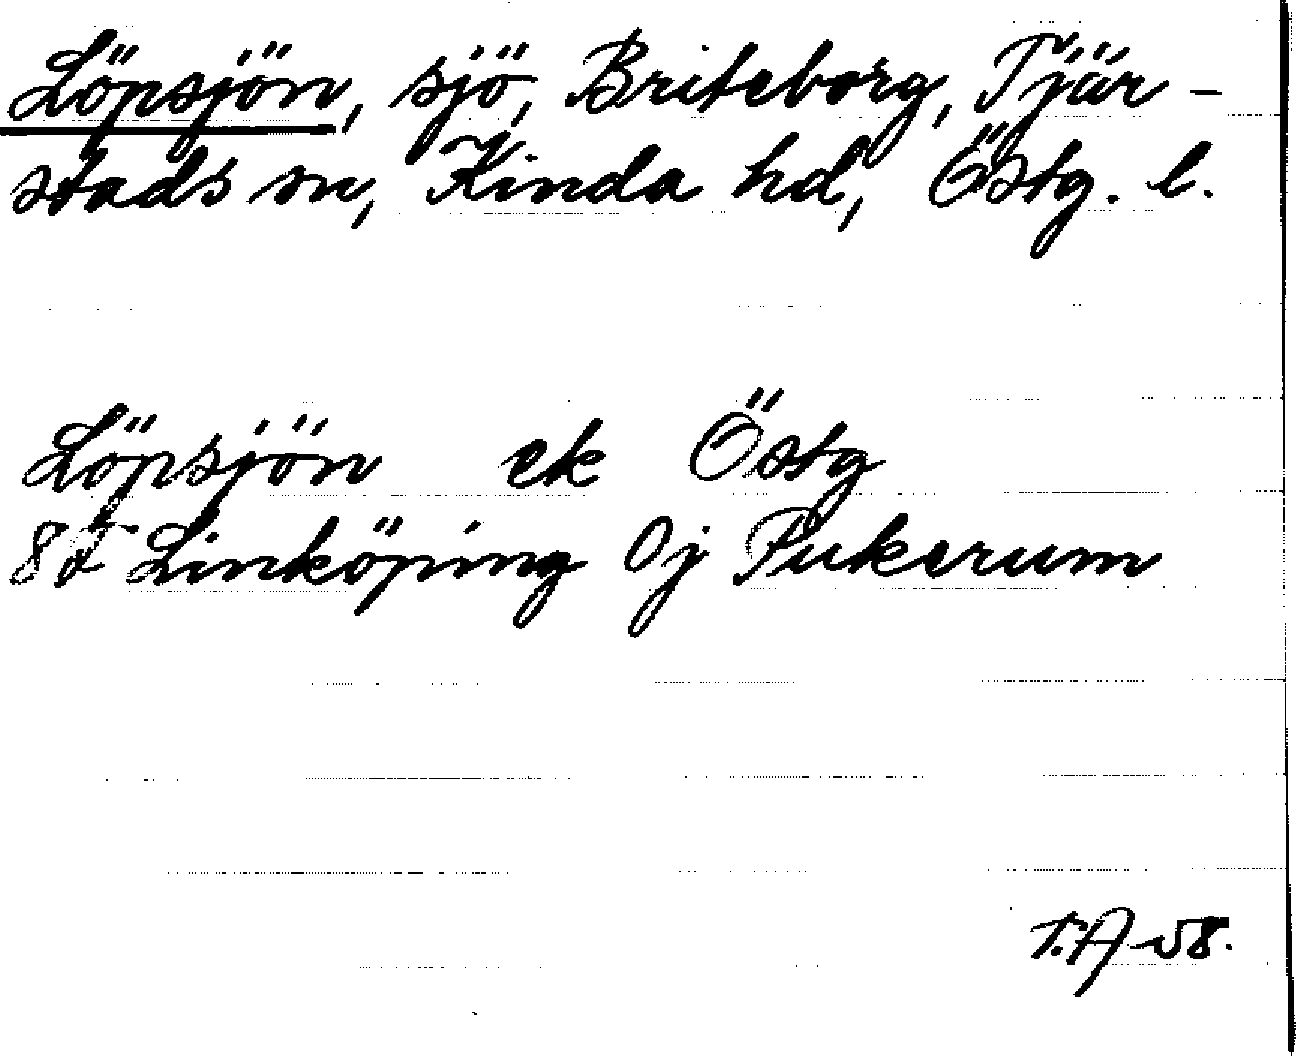 Löpsjön, sjö, Briteborg, Tjär-
stads sn, Kinda hd, Östg. l.
Löpsjön ek Östg
8d Linköping Oj Pukerum
T.A-58.